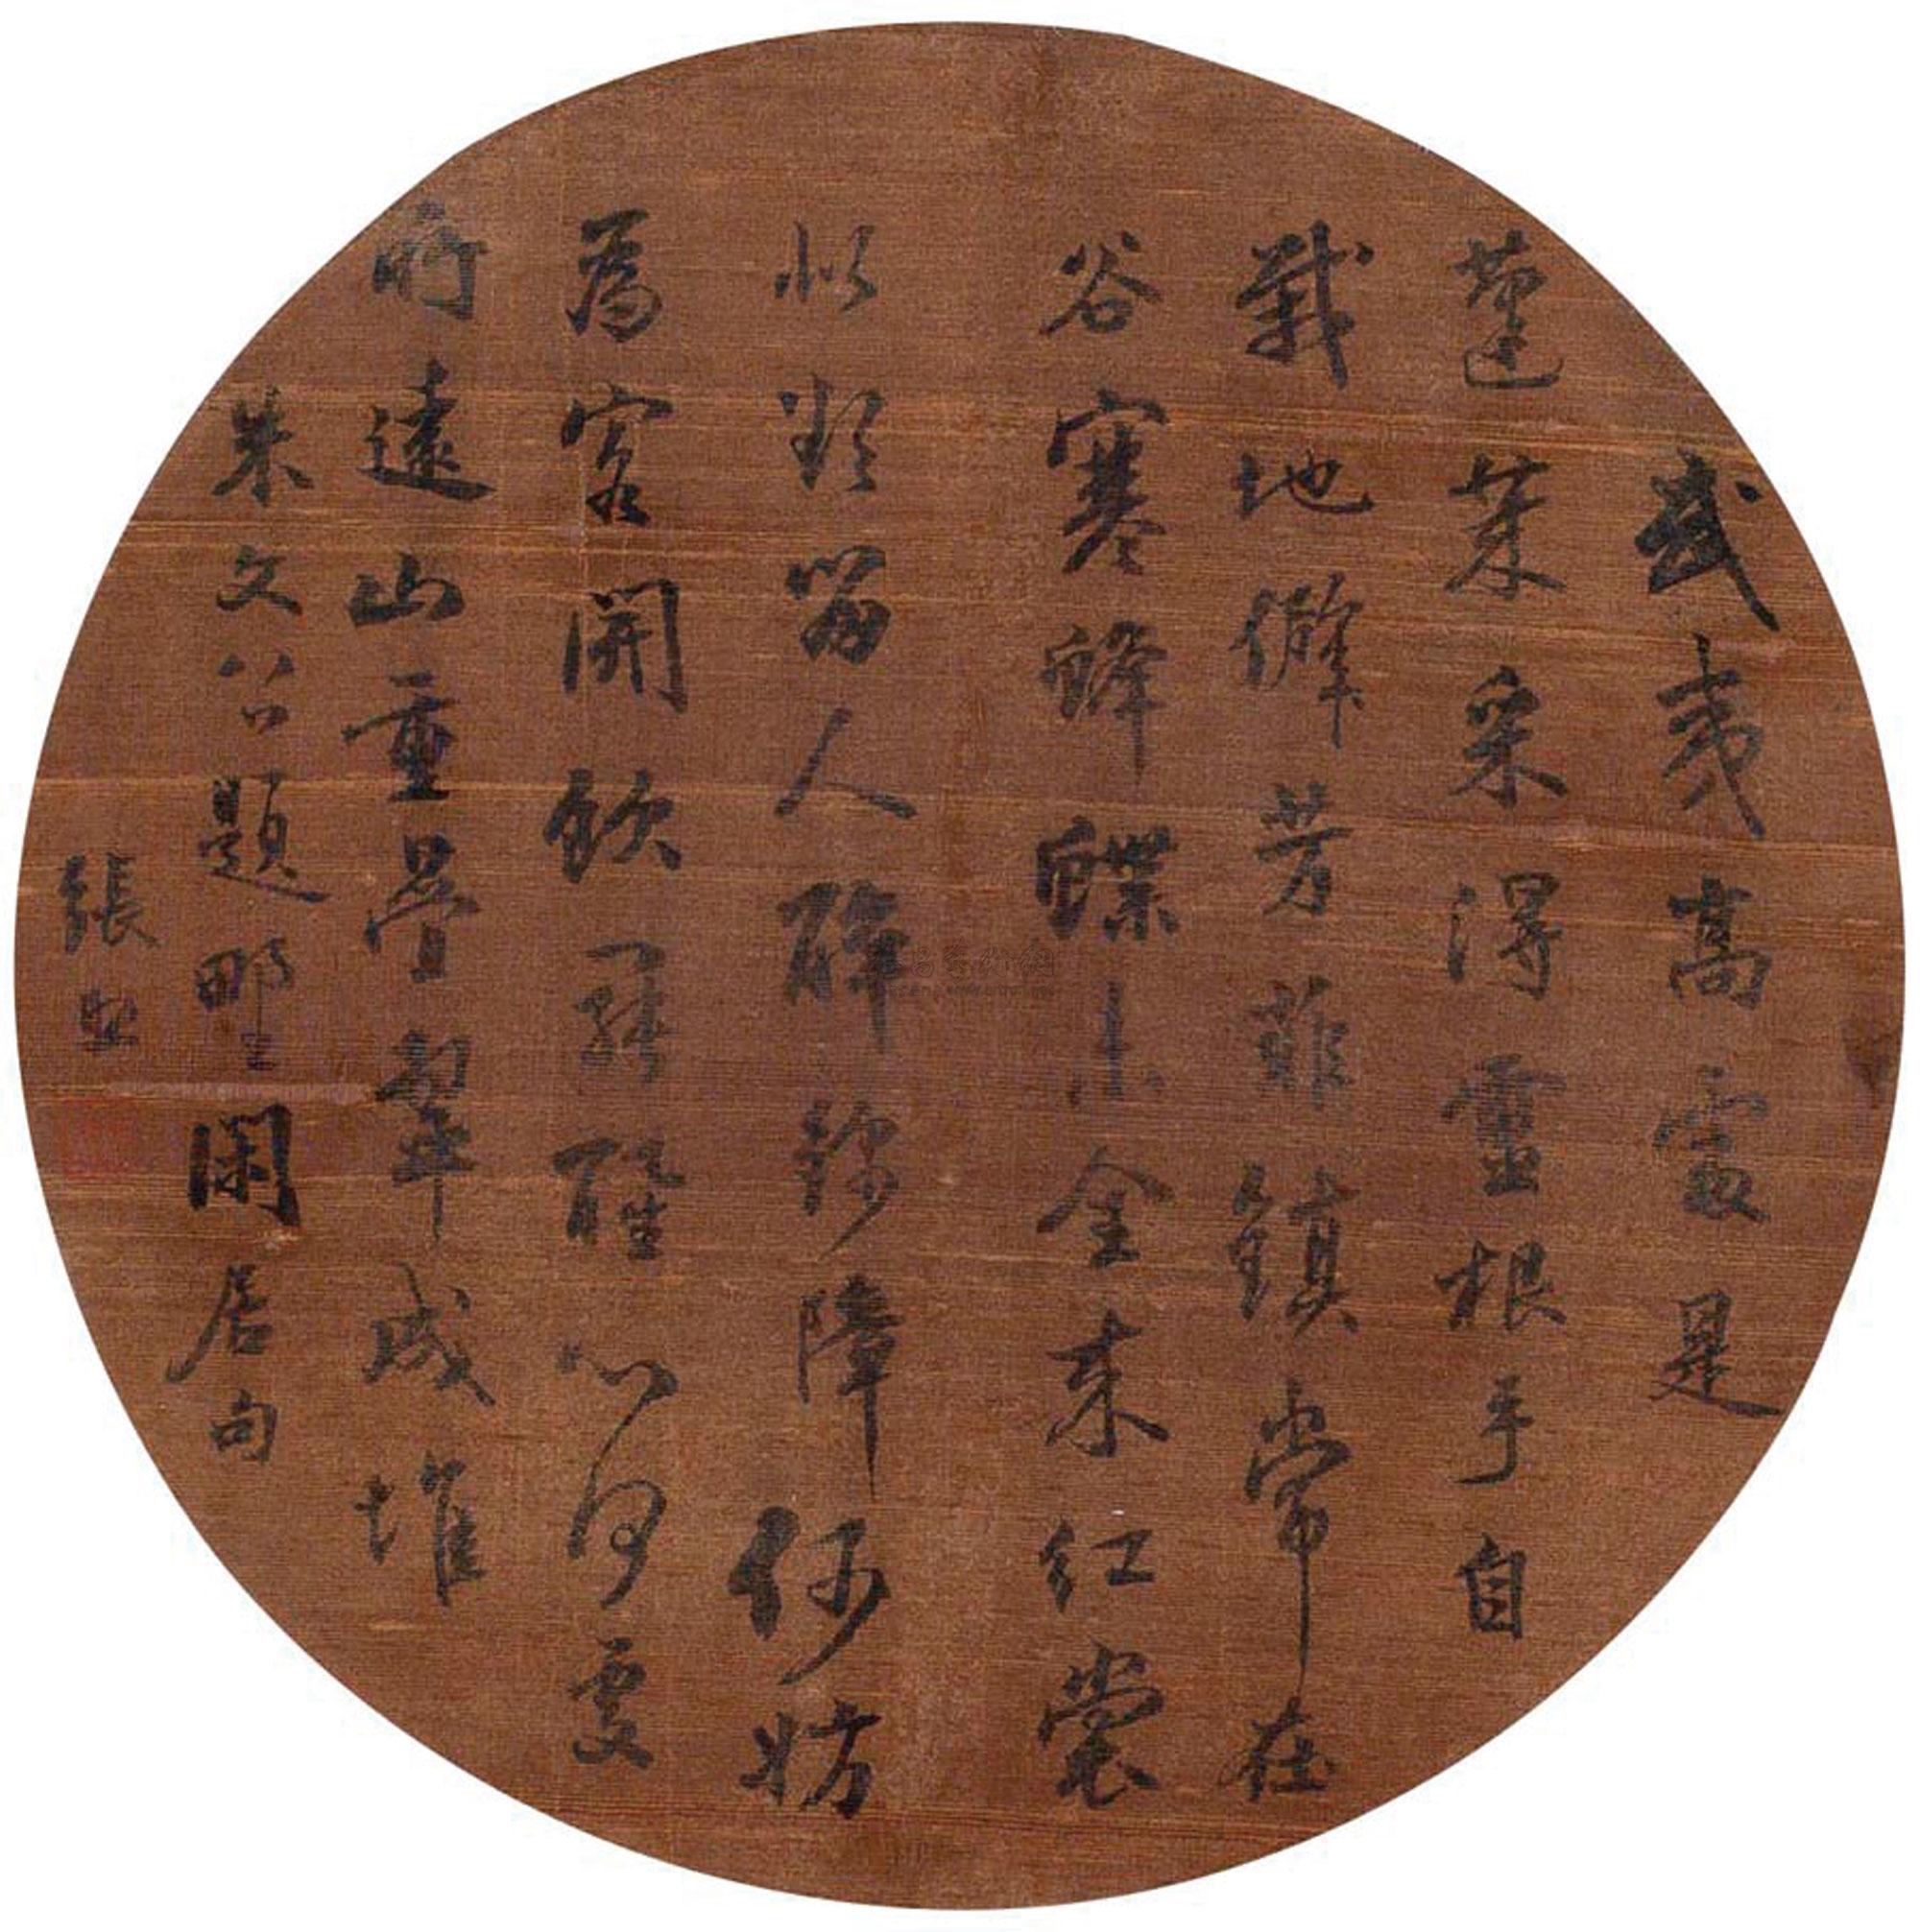 武夷高處是
蓬萊采得靈根手自
栽地僻芳菲鎮常在
谷寒蜂蝶未全来紅裳
似欲留人醉錦障何妨
為客開飲罷醒心何處
所遠山重疊翠成堆
朱文公題野閑居句
張照